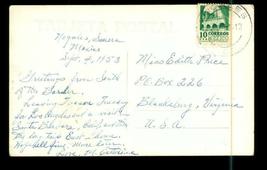 TARJETA POSTAL
Nogales, Sonora
Mexico
Sept. 4, 1953
Greetings from South
of the Border.
Leaving Tucson Tuesday
for Los Angeles and a visit
Santa Barbara, California
the day trip East
Hope all fine. More later.
Love,
Miss Edith Price
P.O. Box 226
Blacksburg, Virginia
U.S.A.
10 CORREOS